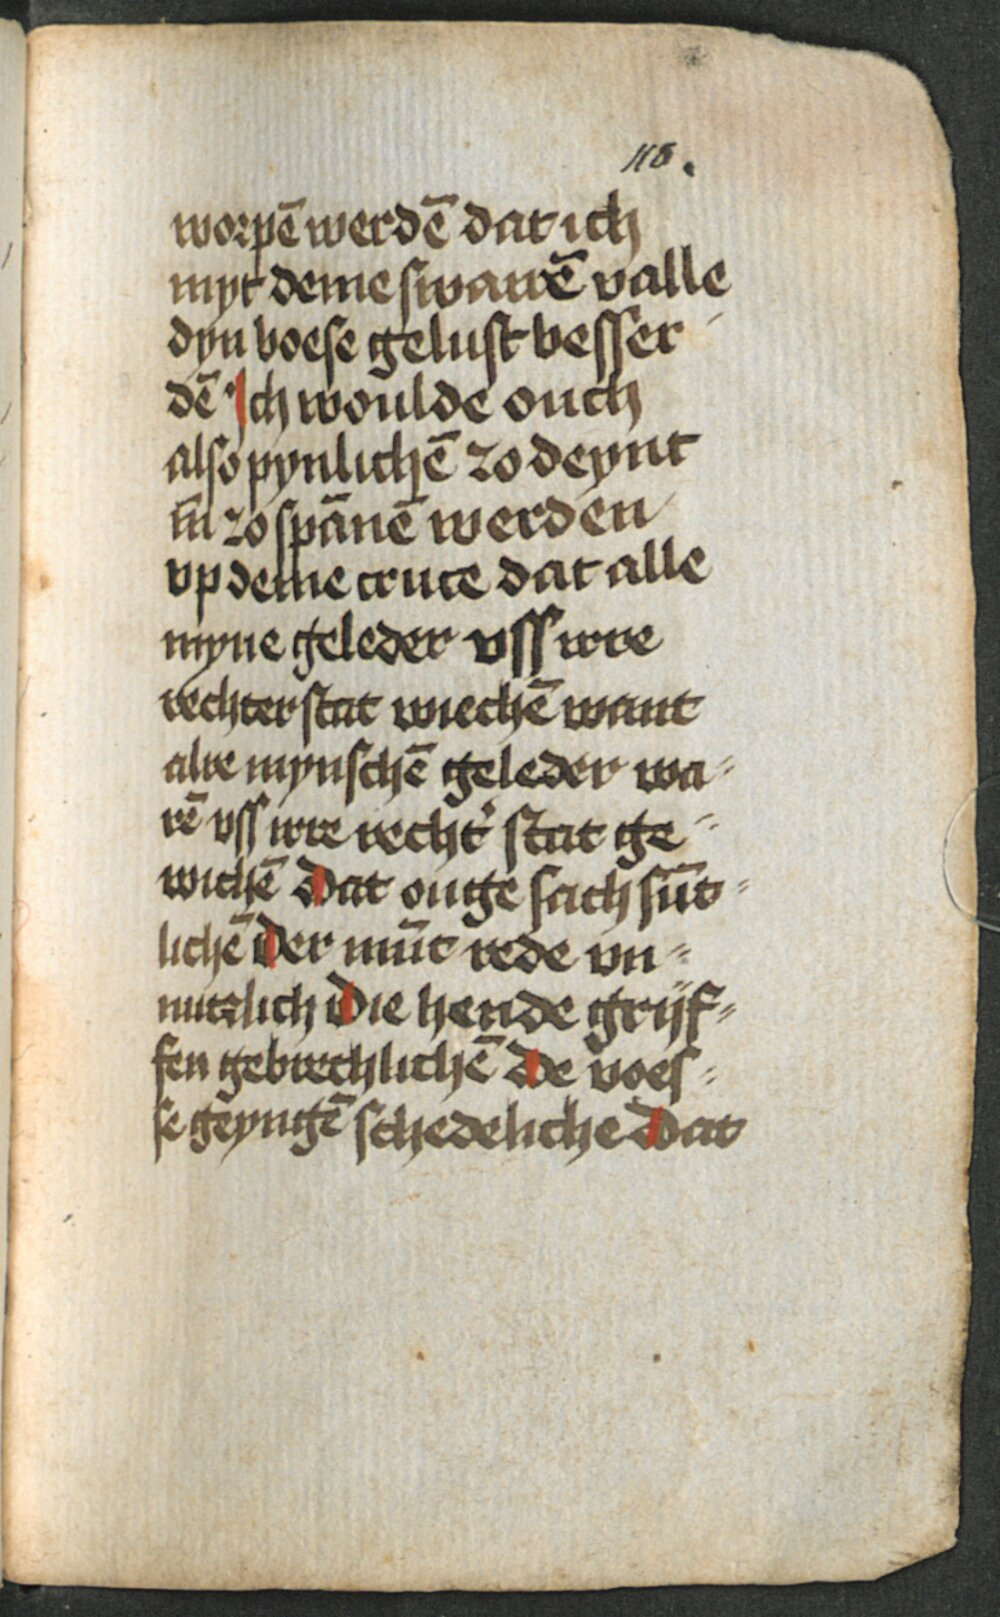 118.
worpē werdē dat ich
myt deme swarrē valle
dyn boese gelust besser-
dē Ich woulde ouch
also pynlichē zo deynt
in zo spānē werden
vp deme cruce dat alle
myne geleder vss irre
rechter stat wiechē want
alre mynschē geleder wa-
rē vss irre recht' stat ge-
wichē Dat ouge sach sūt-
lichē Der mūt rede vn-
nutzlich Die hende grijf-
fen gebrechlichē De voes-
se geyngē schedeliche Dat